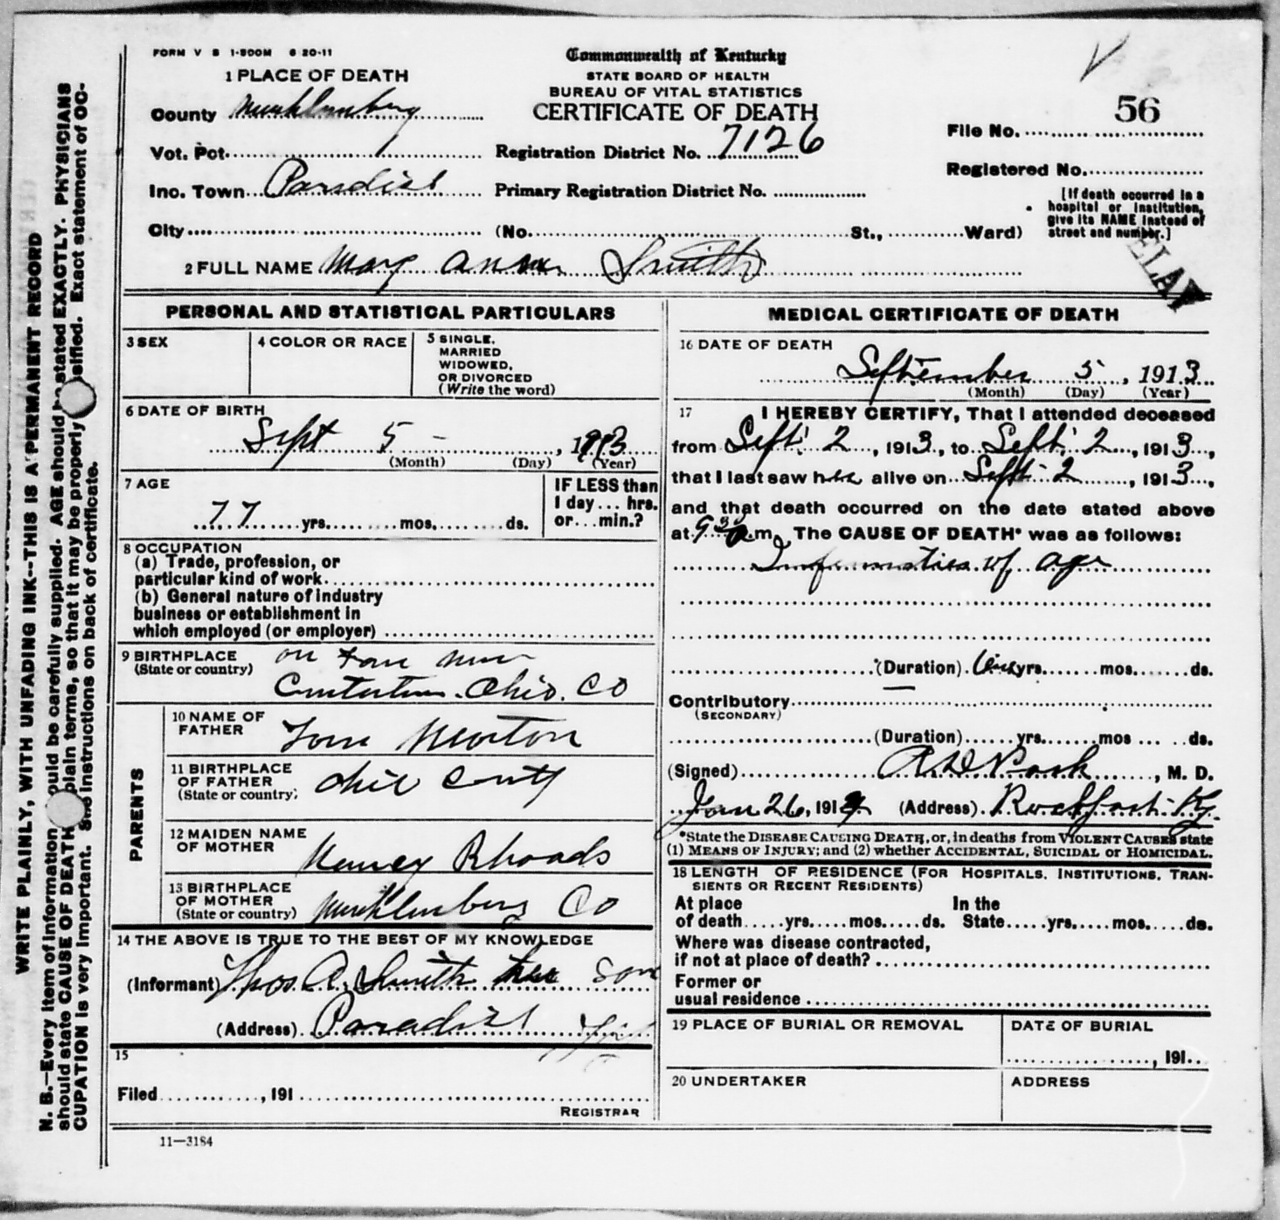 FORM V S 1-500M 6 20-11
Commonwealth of Kentucky
STATE BOARD OF HEALTH
BUREAU OF VITAL STATISTICS
CERTIFICATE OF DEATH
1 PLACE OF DEATH
County Muhlenberg
Vot. Pct.
Inc. Town Paradise
City (No. St., Ward)
Registration District No. 7126
Primary Registration District No.
File No. 56
Registered No.
[If death occurred in a
hospital or institution,
give its NAME instead of
street and number.]
ELAY
2 FULL NAME Mary Smith
PERSONAL AND STATISTICAL PARTICULARS
3 SEX
4 COLOR OR RACE
5 SINGLE,
MARRIED
WIDOWED,
OR DIVORCED
(Write the word)
6 DATE OF BIRTH
Sept 5 - , 1913
(Month) (Day) (Year)
7 AGE
77 yrs. mos. ds.
IF LESS than
1 day ... hrs.
or ... min.?
8 OCCUPATION
(a) Trade, profession, or
particular kind of work
(b) General nature of industry
business or establishment in
which employed (or employer)
9 BIRTHPLACE
(State or country)
on
Ohio Co
PARENTS
10 NAME OF
FATHER
Tom Morton
11 BIRTHPLACE
OF FATHER
(State or country)
12 MAIDEN NAME
OF MOTHER
Rhoads
13 BIRTHPLACE
OF MOTHER
(State or country)
Muhlenberg Co
14 THE ABOVE IS TRUE TO THE BEST OF MY KNOWLEDGE
(Informant) Thos A. Smith her son
(Address) Paradise
15
Filed , 191
REGISTRAR
11—3184
MEDICAL CERTIFICATE OF DEATH
16 DATE OF DEATH
September 5 , 1913
(Month) (Day) (Year)
17 I HEREBY CERTIFY, That I attended deceased
from Sept. 2 , 1913, to Sept. 2 , 1913,
that I last saw her alive on Sept. 2 , 1913,
and that death occurred on the date stated above
at 9 30 a m. The CAUSE OF DEATH* was as follows:
of age
(Duration) yrs. mos. ds.
Contributory
(SECONDARY)
(Duration) yrs. mos ds.
(Signed) , M. D.
Jan 26, 191 (Address) Rockport Ky.
*State the DISEASE CAUSING DEATH, or, in deaths from VIOLENT CAUSES state
(1) MEANS OF INJURY; and (2) whether ACCIDENTAL, SUICIDAL or HOMICIDAL.
18 LENGTH OF RESIDENCE (FOR HOSPITALS, INSTITUTIONS, TRAN-
SIENTS OR RECENT RESIDENTS)
At place In the
of death yrs. mos. ds. State yrs. mos. ds.
Where was disease contracted,
if not at place of death?
Former or
usual residence
19 PLACE OF BURIAL OR REMOVAL
DATE OF BURIAL
, 191
20 UNDERTAKER
ADDRESS
WRITE PLAINLY, WITH UNFADING INK--THIS IS A PERMANENT RECORD
N. B.—Every item of information ould be carefully supplied. AGE should stated EXACTLY. PHYSICIANS
should state CAUSE OF DEATH plain terms, so that it may be properly ssified. Exact statement of OC-
CUPATION is very important. See instructions on back of certificate.